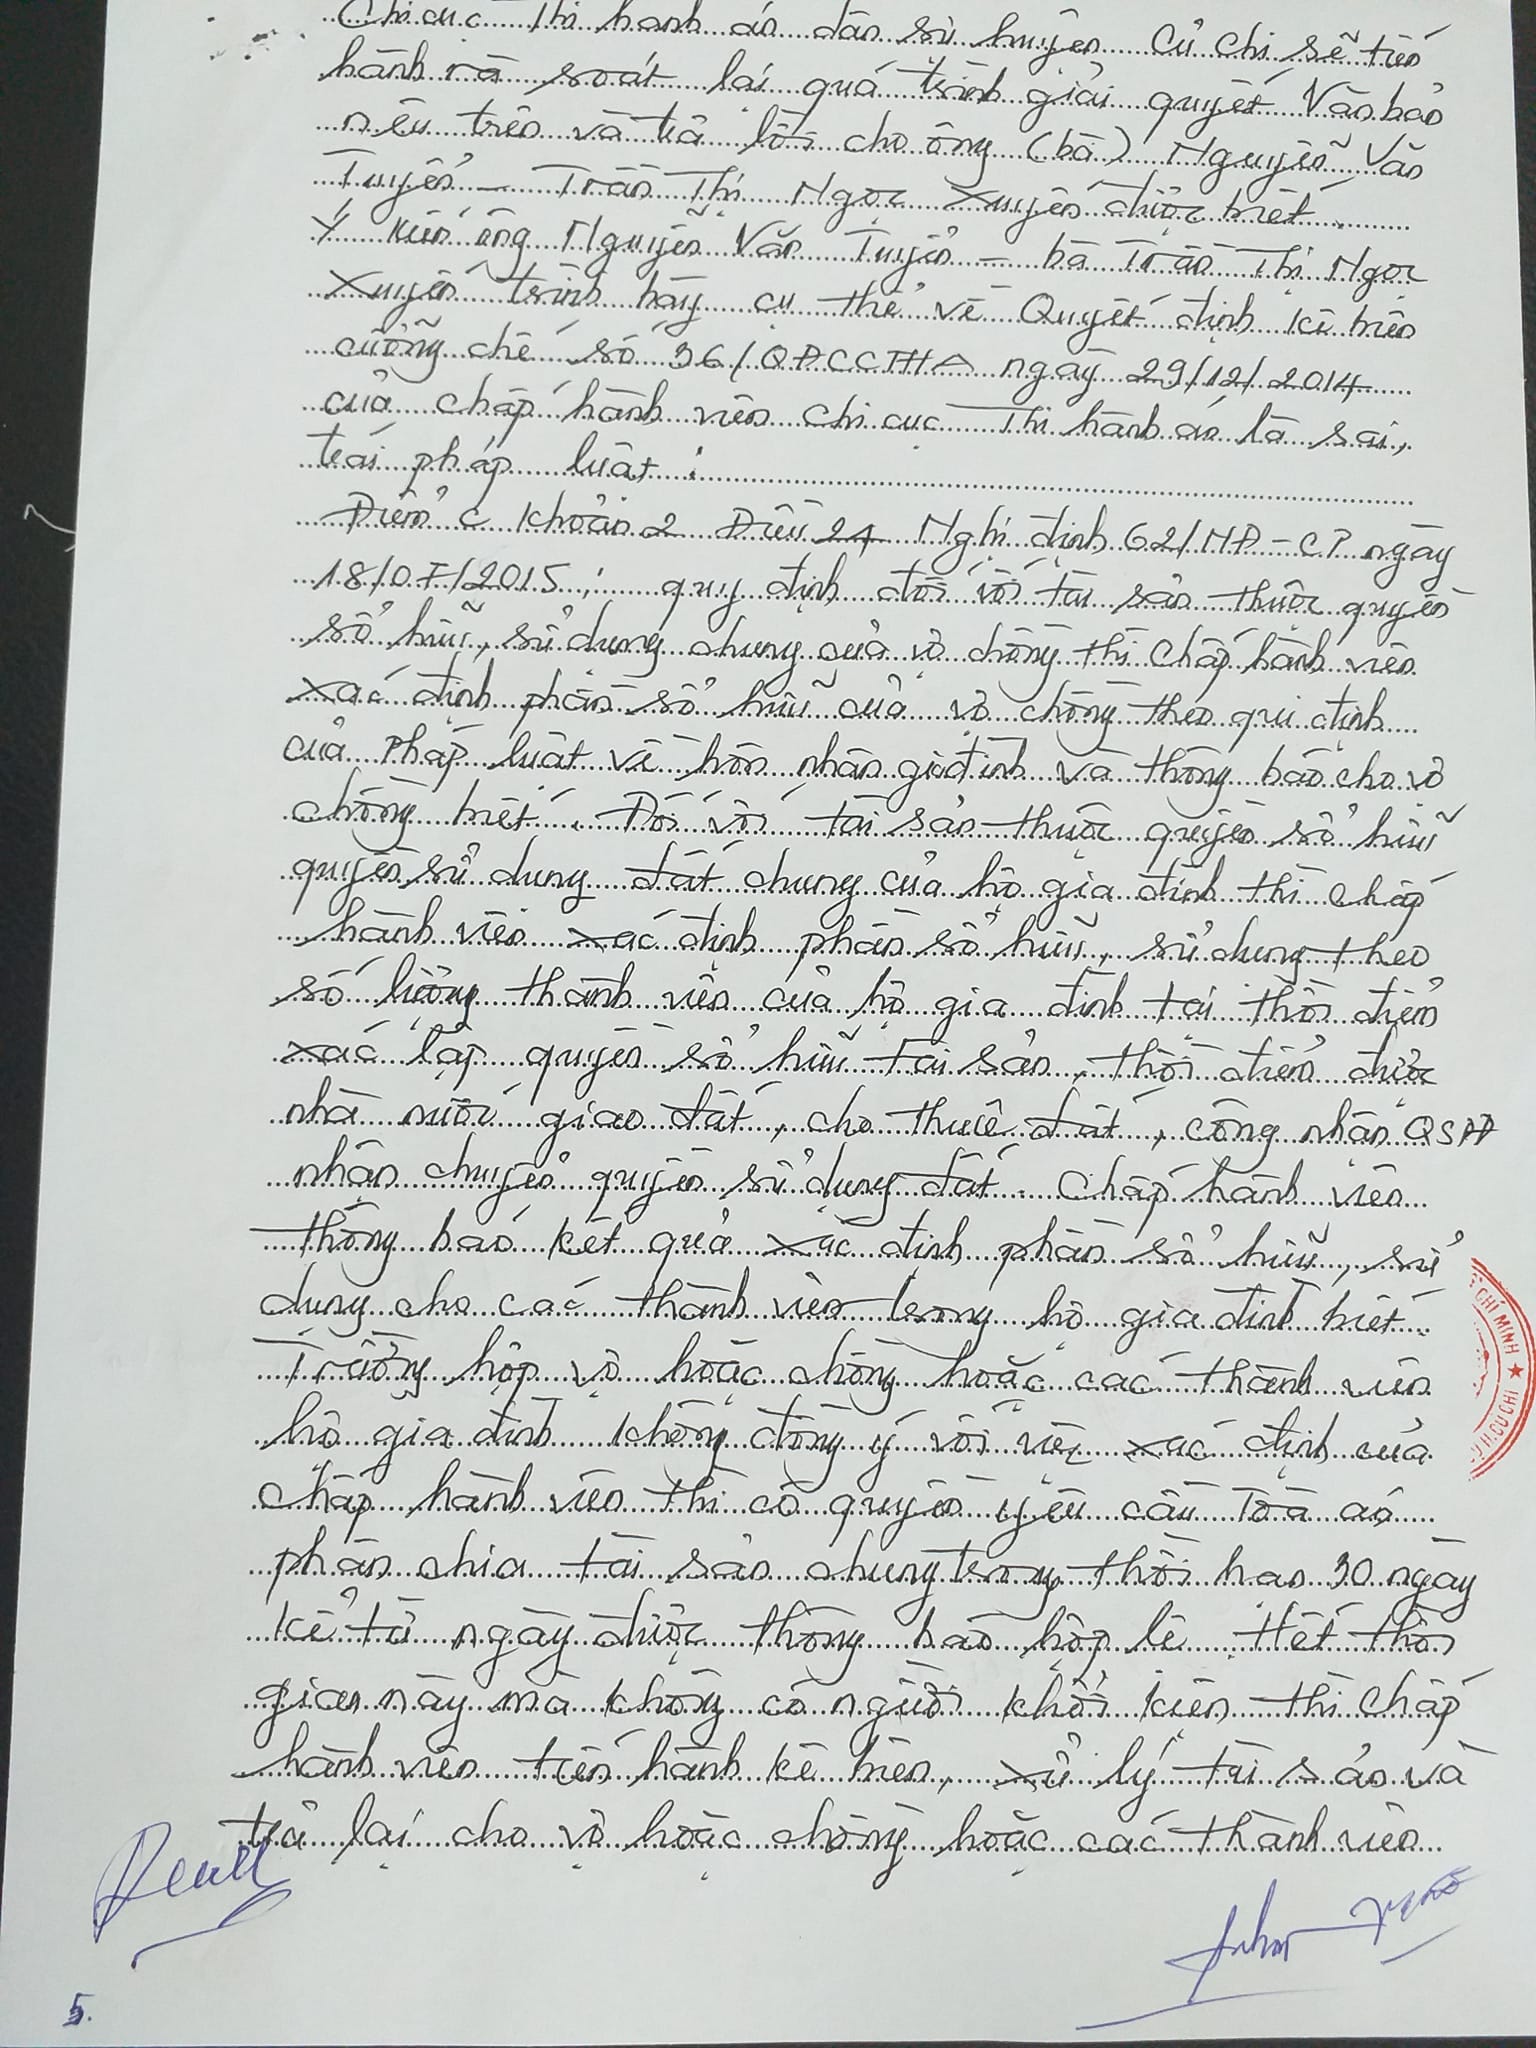 Chi cục Thi hành án dân sự huyện Củ Chi sẽ tiến
hành rà soát lại quá trình giải quyết Văn bản
nêu trên và trả lời cho ông (bà) Nguyễn Văn
Tuyển - Trần Thị Ngọc Xuyến được biết.
Ý kiến ông Nguyễn Văn Tuyển - bà Trần Thị Ngọc
Xuyến trình bày cụ thể về Quyết định kê biên
cưỡng chế số 36/QĐCCTHA ngày 29/12/2014
của chấp hành viên chi cục Thi hành án là sai,
trái pháp luật :
Điểm c khoản 2 Điều 24 Nghị định 62/NĐ-CP ngày
18/07/2015; quy định đối với tài sản thuộc quyền
sở hữu, sử dụng chung của vợ chồng thì Chấp hành viên
xác định phần sở hữu của vợ chồng theo qui định
của Pháp luật về hôn nhân gia đình và thông báo cho vợ
chồng biết. Đối với tài sản thuộc quyền sở hữu
quyền sử dụng đất chung của hộ gia đình thì chấp
hành viên xác định phần sở hữu, sử dụng theo
số lượng thành viên của hộ gia đình tại thời điểm
xác lập quyền sở hữu tài sản, thời điểm được
nhà nước giao đất, cho thuê đất, công nhận QSĐĐ
nhận chuyển quyền sử dụng đất. Chấp hành viên
thông báo kết quả xác định phần sở hữu, sử
dụng cho các thành viên trong hộ gia đình biết.
Trường hợp vợ hoặc chồng hoặc các thành viên
hộ gia đình không đồng ý với việc xác định của
chấp hành viên thì có quyền yêu cầu Tòa án
phân chia tài sản chung trong thời hạn 30 ngày
kể từ ngày được thông báo hợp lệ. Hết thời
gian này mà không có người khởi kiện thì chấp
hành viên tiến hành kê biên, xử lý tài sản và
trả lại cho vợ hoặc chồng hoặc các thành viên
CHÍ MINH ★
H. CỦ CHI
5.